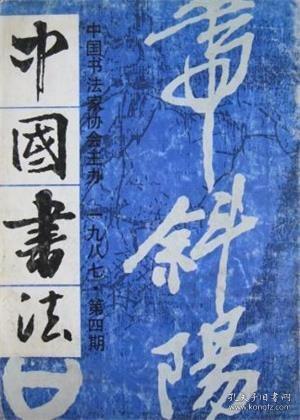 中國書法
中国书法家协会主办 一九八七·第四期
斜陽
孔夫子旧书网